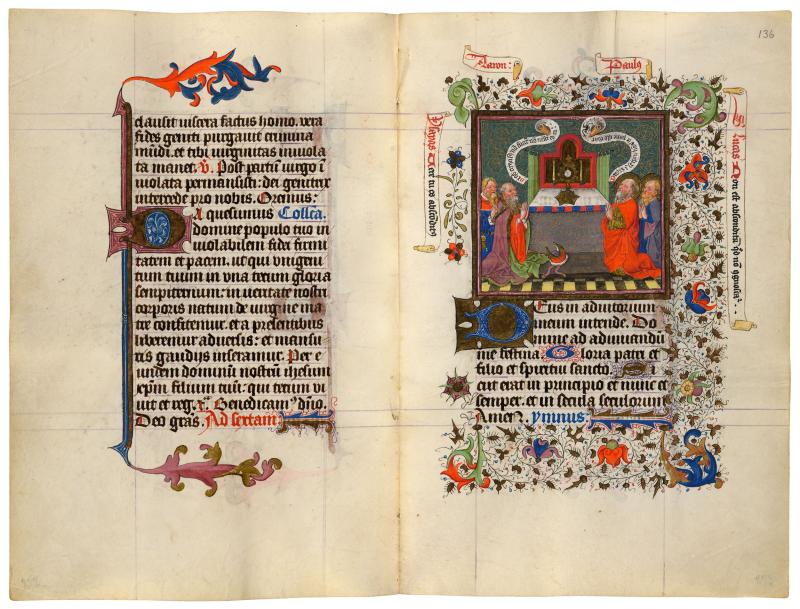 clausit viscera factus homo. vera
fides geniti purgavit crimina
mūdi. et tibi virginitas inviola
ta manet. V̄. Post partū virgo ī
violata permansisti: dei genitrix
intercede pro nobis. Oremus:
Da quesumus Collca.
domine populo tuo in
violabilem fidei firmi
tatem et pacem. ut qui unigeni
tum tuum in tua tecum gloria
sempiternum: in veritate nostri
corporis natum de virgine ma
tre confitemur. et a presentibus
liberemur adversis: et mansu
ris gaudijs inseramur. Per e
undem dominū nostrum ihesum
xp̄m filium tuū: qui tecum vi
vit et reg. Benedicamꝰ dn̄o.
Deo grās. Ad sextam:
136
Aaron:
Paulus
Vere tu es absconditus
Lucas Non est absconditū qd nō
Deus in adiutorium
meum intende. Do
mine ad adiuvandū
me festina Gloria patri et
filio et spiritui sancto. Si
cut erat in principio et nunc et
semper. et in secula seculorum
Amen. Ymnus: